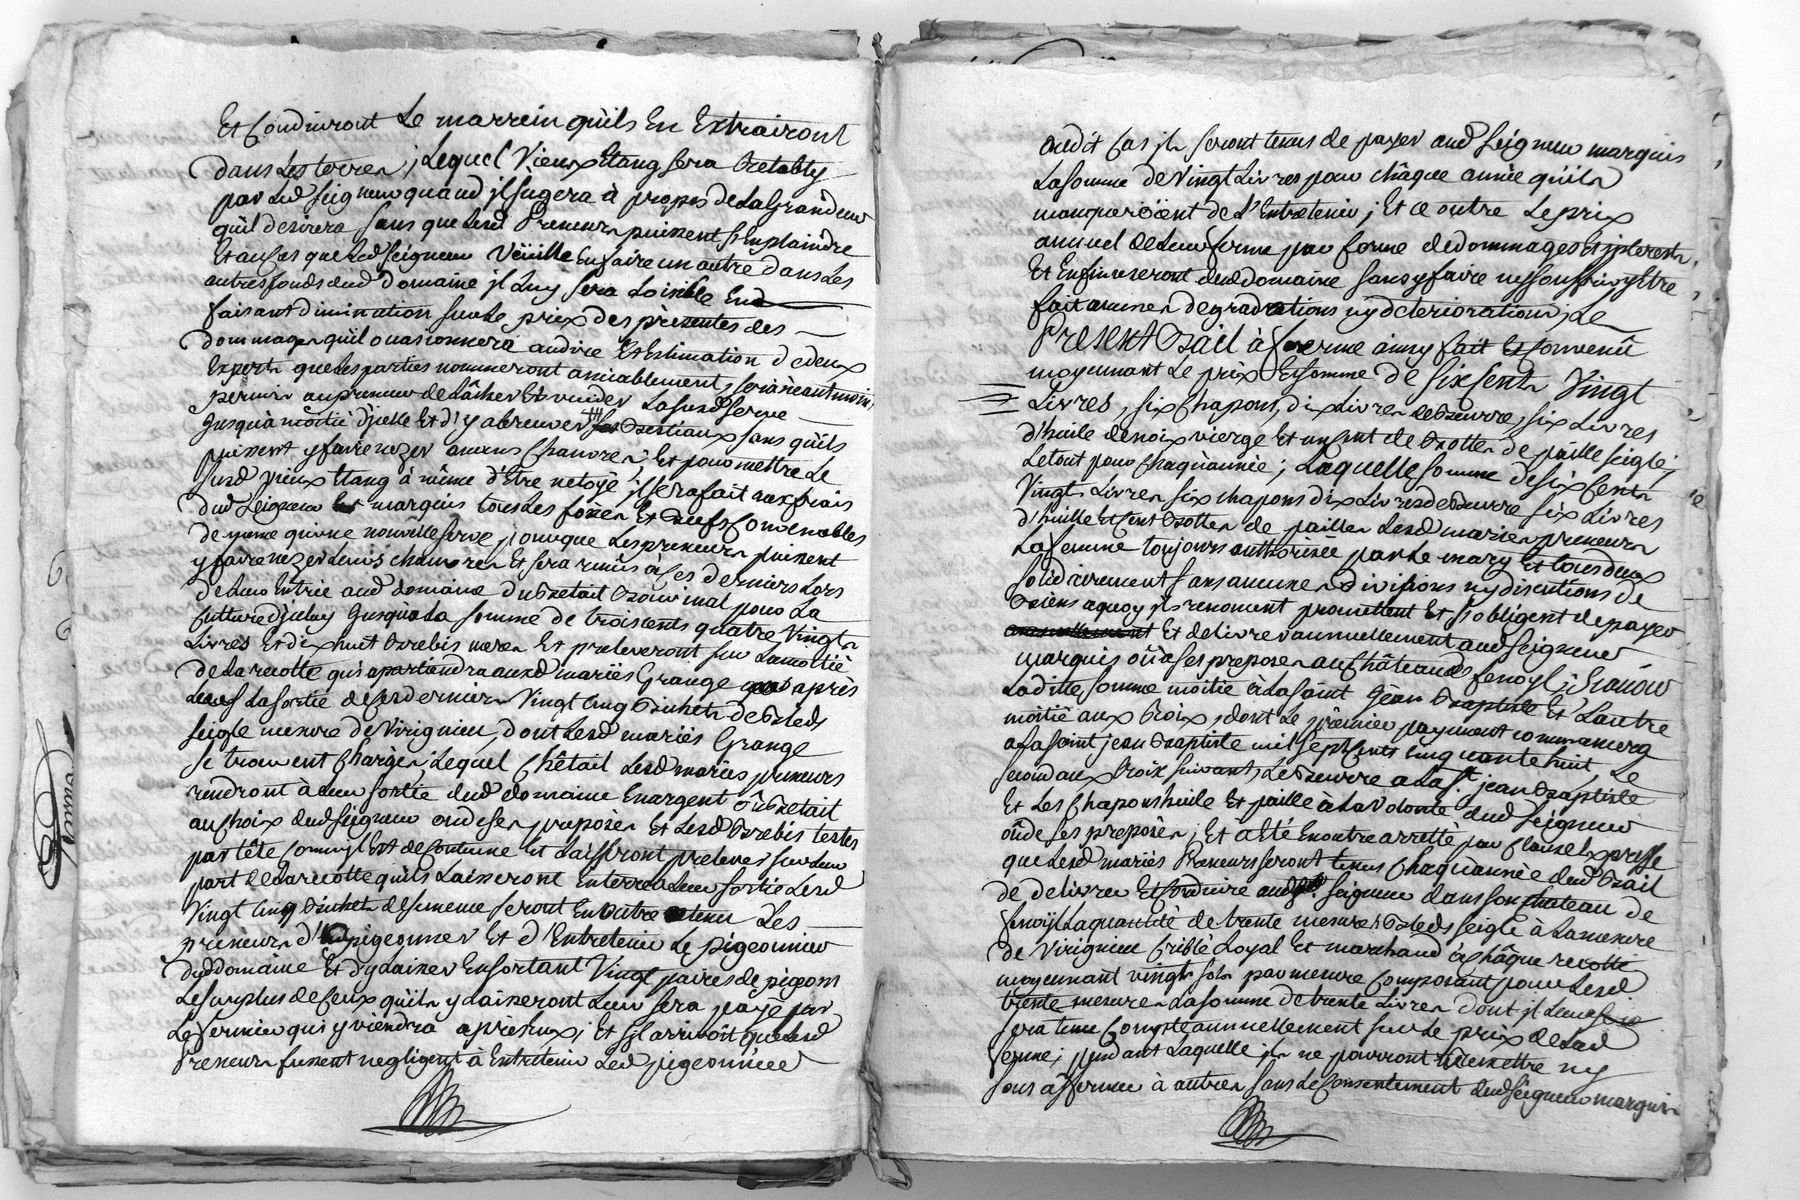 Et Conduiront Le marrein quils En Extrairont
dans Les terres ; Lequel Vieux Etang sera Retably
par Led seigneur quand jl jugera à propos de La Grandeur
quil desirera sans que Lesd Preneurs puissent s'En plaindre
Et au cas que Led seigneur Veüille En faire un autre dans Les
autres fonds dud Domaine jl Luy sera Loisible En
faisant diminution sur Le prix des présentes des
Dommages quil ouasionnera au dire Et Estimation de deux
Experts que Les parties nommeront amiablement, sera néantmoins
permis au preneur de Lâcher Et vuider La susd Serve
Jusqu'à moitié d'jcelle Et d'y abreuver ses Bestiaux sans quils
puissent y faire nezer aucuns Chanvres ; Et pour mettre Le
susd vieux Etang à même d'Etre netoyé ; jl sera fait aux frais
dud Seigneur marquis tous Les fossés Et Biefs Convenables
de meme qu'une nouvelle serve pour que Les preneurs puissent
y faire nezer Leurs chanvres Et sera remis a ses derniers Lors
de Leur Entrée aud domaine du Betail Bouvinal pour La
Culture d'jceluy Jusqu'a La somme de trois cents quatre Vingts
Livres Et dix huit Brebis meres Et preleveront sur La moitié
de La recolte qui apartiendra auxd mariés Grange après
La sortie de Ces derniers Vingt Cinq Bichets de Bleds
seigle mesure de Virignieu, dont Lesd mariés Grange
se trouvent Chargés ; Lequel Chêtail Lesd mariés preneurs
rendront à Leur sortie dud domaine En argent oû Betail
au choix dud seigneur ou de ses preposés Et Lesd Brebis testes
par tête Comme jl Est de Coutume Et Laisseront prelever sur Leur
part de La recolte quils Laisseront En terre a Leur sortie Lesd
Vingt Cinq Bichets de semence seront En outre tenu Les
preneurs d' Empigeonner Et d'Entretenir Le pigeonnier
dud domaine Et d'y Laisser En sortant Vingt paires de pigeons
Le surplus de Ceux quils y Laisseront Leur sera payé par
Le fermier qui y viendra après Eux ; Et s'jl arrivoit que Lesd
Preneurs fussent negligent à Entretenir Led pigeonnier
audit Cas jls seront tenus de payer aud seigneur marquis
La somme de Vingt Livres pour châque année quils
manqueroient de L'Entretenir ; Et ce outre Le prix
annuel de Leur ferme par forme de dommages Et jnterests
Et En jouiront dud domaine sans y faire ny souffrir y Etre
fait aucunes degradations ny deteriorations, Le
Present Bail à ferme ainsy fait Et Convenû
moyennant Le prix Et somme de six Cents Vingt
Livres, six Chapons, dix Livres de Beurre, six Livres
d'huile de noix vierge Et un Cent de Bottes de paille seigle ;
Le tout pour Chaque année ; Laquelle somme de six Cents
Vingts Livres six chapons dix Livres de Beurre six Livres
d'huille Et Cent Bottes de pailles Lesd mariés preneurs
La femme toujours authorisée par Le mary Et tous deux
solidairement sans aucunes divisions ny discutions de
Biens a quoy jls renoncent promettent Et s'obligent de payer
Et delivrer annuellement aud Seigneur
marquis oû a ses preposés au Château de fenoyl ; scavoir
Laditte somme moitié à La saint Jean Baptiste Et L'autre
moitié aux Roix, dont Le premier payement commancera
a La saint jean Baptiste mil sept Cents Cinquante huit, Le
second aux Roix suivant, Le Beurre a La st. jean Baptiste
Et Les Chapons huile Et paille à La volonté dud seigneur
oû de ses preposés ; Et a Eté En outre arretté par Clause Expresse
que Lesd mariés Preneurs seront tenus Chaque année dud Bail
de delivrer Et Conduire aud Seigneur dans son chateau de
fenoïl La quantité de trente mesures Bleds seigle à La mesure
de Virignieu Criblé Loyal Et marchand à châque recolte
moyennant vingts sols par mesure Composant pour Lesd
trente mesures La somme de trente Livres dont jl Leur
sera tenu Compte annuellement sur Le prix de Lad
ferme ; pendant Laquelle jls ne pourront remettre ny
sous affermer à autres sans Le Consentement dud Seigneur marquis